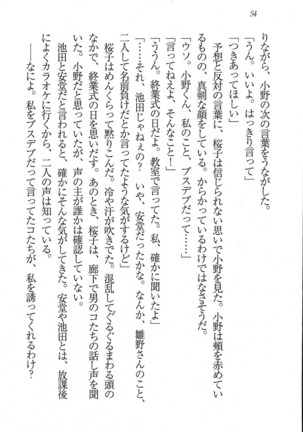 54
りながら、小野の次の言葉をそうながした。
「うん。いいよ。はっきり言って」
「つきあってほしい」
予想と反対の言葉に、桜子は信じられない思いで小野を見た。小野は頬を赤めてい
るものの、真剣な顔をしている。からかっているわけではなさそうだ。
「ウソ。小野くん、私のこと、ブスデブだって……」
「言ってねえよ、そんなこと！」
「ううん。終業式の日だよ。教室で言ってた。私、確かに聞いたよ」
「……それ、池田じゃねぇの？　いや、安堂だったかな。なんか、雛野さんのこと、
二人して名前負けだとか言ってたような気がするけど」
桜子はめんくらって黙りこんだ。冷や汗が吹きでた。混乱してぐるぐるまわる頭の
なかで、終業式の日を思いだす。あのとき、桜子は、廊下で男のコたちの話し声を聞
いた。小野だと思っていたが、声の主が誰かは確認はしていない。
池田と安堂だと言われると、確かにそんな気がしてきた。安堂や池田とは、放課後
によくカラオケに行くから、二人の声は知っている。
――なによ。私をブスデブだって言ってたコたちが、私を誘ってくれるわけ？